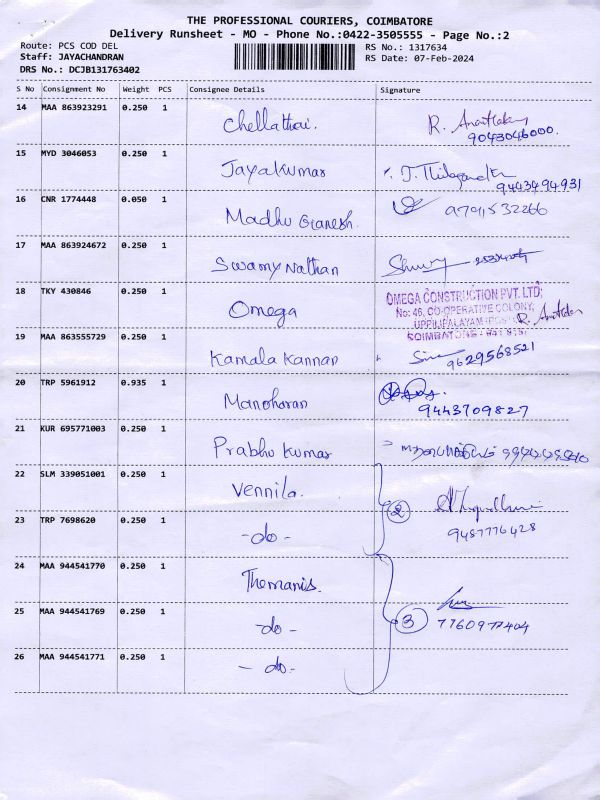 THE PROFESSIONAL COURIERS, COIMBATORE
Delivery Runsheet - MO - Phone No.:0422-3505555 - Page No.:2
Route: PCS COD DEL
RS No.: 1317634
Staff: JAYACHANDRAN
RS Date: 07-Feb-2024
DRS No.: DCJB131763402
S No Consignment No Weight PCS Consignee Details Signature
14 MAA 863923291 0.250 1 Chellathai. R.
9043046000.
15 MYD 3046053 0.250 1 Jayakumar
9443494931
16 CNR 1774448 0.050 1 Madhu Ganesh. 9791532266
17 MAA 863924672 0.250 1 Swamy Nathan
18 TKY 430846 0.250 1 Omega
OMEGA CONSTRUCTION PVT. LTD,
No: 46, CO-OPERATIVE COLONY,
UPPILIPALAYAM
COIMBATORE - 641 015. R.
19 MAA 863555729 0.250 1 Kamala Kannan
9629568521
20 TRP 5961912 0.935 1 Manoharan
9443709827
21 KUR 695771003 0.250 1 Prabhu Kumar
22 SLM 339051001 0.250 1 Vennila.
2
23 TRP 7698620 0.250 1 -do- 9487776428
24 MAA 944541770 0.250 1 Themanis.
25 MAA 944541769 0.250 1 -do- 3
26 MAA 944541771 0.250 1 -do-